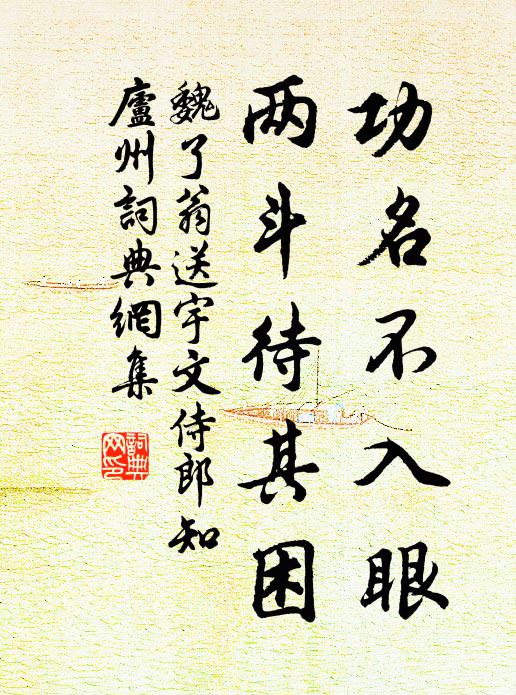 功名不入眼
两斗待其困
魏了翁送宇文侍郎知
廬州詞典網集
詞典網印